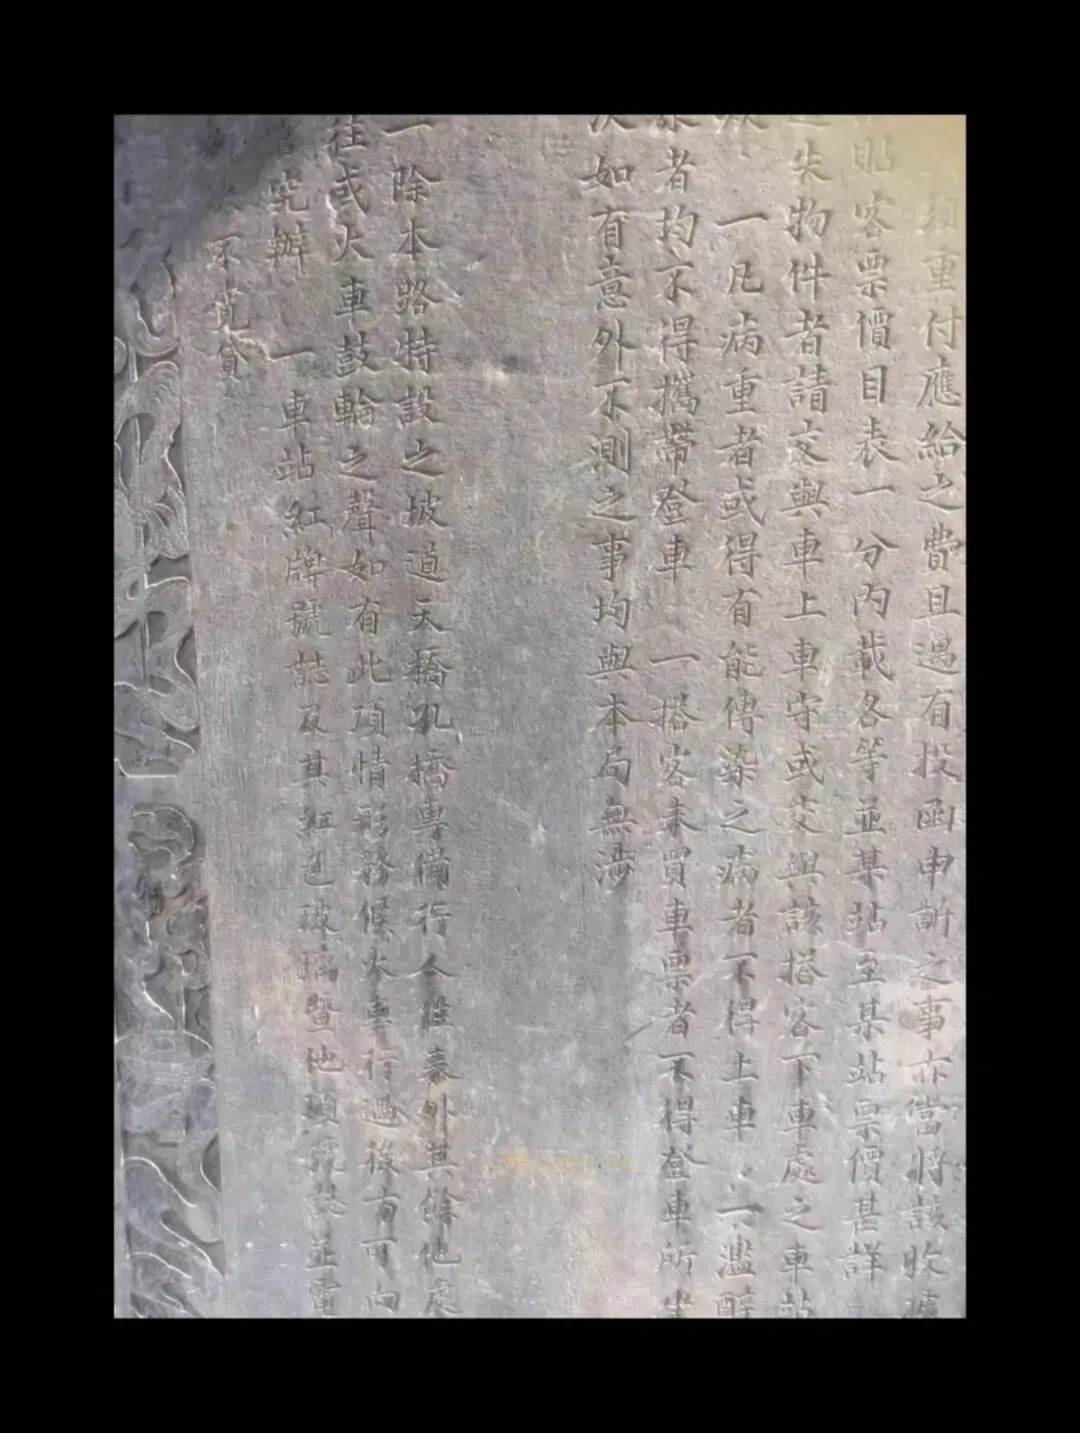 須重付應給之費且遇有投函申訴之事亦當將該收據
貼客票價目表一分內載各等並某站至某站票價甚詳
失物件者請交與車上車守或交與該搭客下車處之車站
一凡病重者或得有能傳染之病者不得上車 一濫醉
者均不得攜帶登車 一搭客未買車票者不得登車所坐
次如有意外不測之事均與本局無涉
一除本路特設之坡道天橋孔橋專備行人往來外其餘他處
往或火車鼓輪之聲如有此項情形務候火車行過後方可向
究辦 一車站紅牌號誌及其紅色玻璃暨他項號誌並電
不寬貸